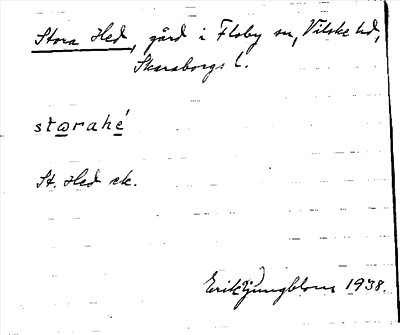 Stora Hed, gård i Floby sn, Vilske hd,
Skaraborgs l.
stωrahé
St. Hed ek.
Erik Ljungblom 1938.